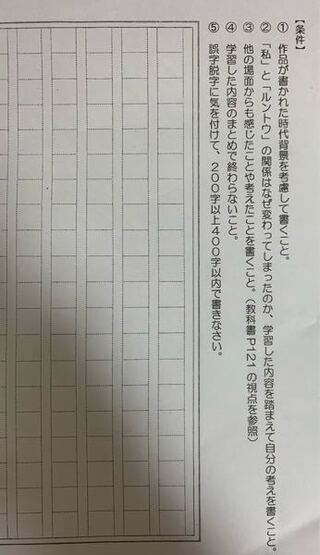 【条件】
① 作品が書かれた時代背景を考慮して書くこと。
② 「私」と「ルントウ」の関係はなぜ変わってしまったのか、学習した内容を踏まえて自分の考えを書くこと。
③ 他の場面からも感じたことや考えたことを書くこと。（教科書P121の視点を参照）
④ 学習した内容のまとめで終わらないこと。
⑤ 誤字脱字に気を付けて、200字以上400字以内で書きなさい。